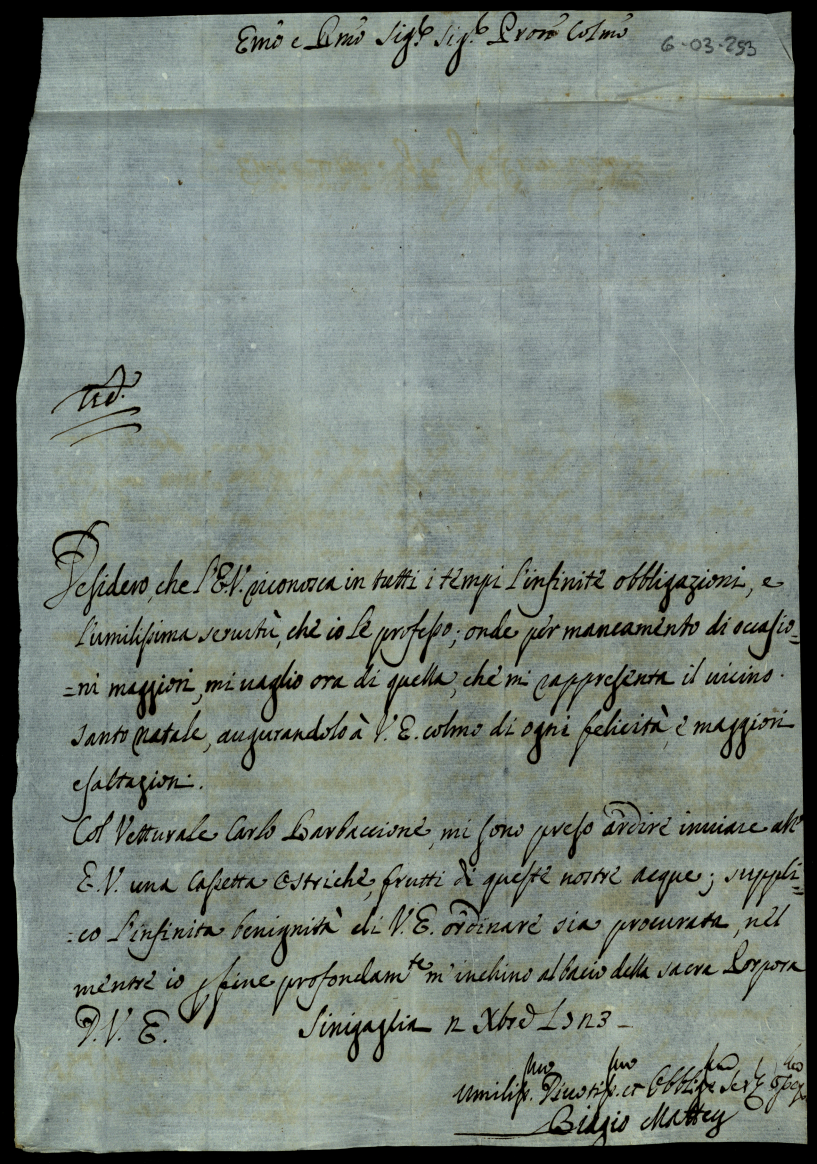 Emo e Rmo Sigr. Sigr. Pron Colmo
6-03-253
Ved.
Desidero, che l'E.V. riconosca in tutti i tempi l'infinite obbligazioni, e
l'umilissima servitù, che io le professo; onde per mancamento di occasio=
=ni maggiori, mi vaglio ora di quella, che mi rappresenta il vicino
santo natale, augurandolo à V.E. colmo di ogni felicità, e maggiori
esaltazioni.
Col Vetturale Carlo Barbaccione, mi sono preso ardire inviare all'
E.V. una Cassetta Ostriche, frutti di queste nostre acque; suppli=
=co l'infinita benignità di V.E. ordinare sia procurata, nel
mentre io per fine profondamte m'inchino al bacio della sacra Porpora
D.V.E. Sinigaglia
Umiliss.mo Divotiss.mo et Obbliga Ser.
Biagio Mattey